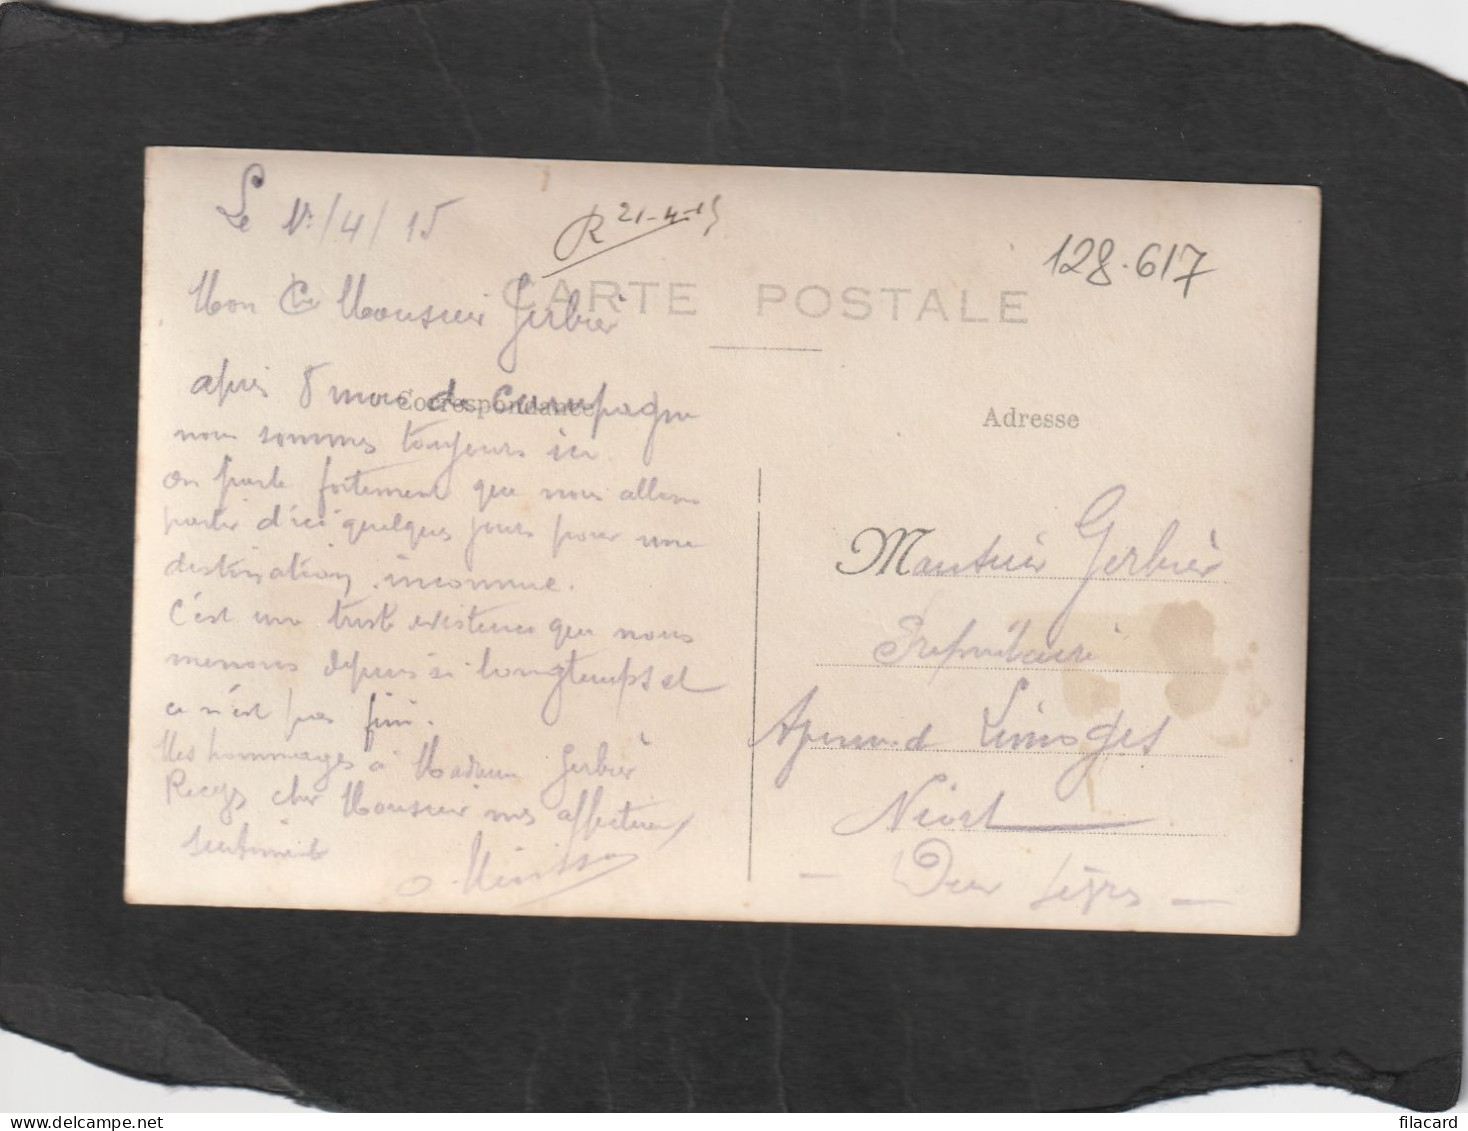 Le 1r/4/15
R 21-4-15
128-617
CARTE POSTALE
Mon Cher Monsieur Gerbier
après 8 mois de Campagne
Correspondance
nous sommes toujours ici
on parle fortement que nous allons
partir d'ici quelques jours pour une
destination inconnue.
C'est une triste existence que nous
menons depuis si longtemps et
ce n'est pas fini.
Mes hommages à Madame Gerbièr
Recevez cher Monsieur mes affectueux
sentiments
Adresse
Monsieur Gerbièr
Propriétaire
Avenue de Limoges
Niort
- Deux Sèvres -
www.filacard.com